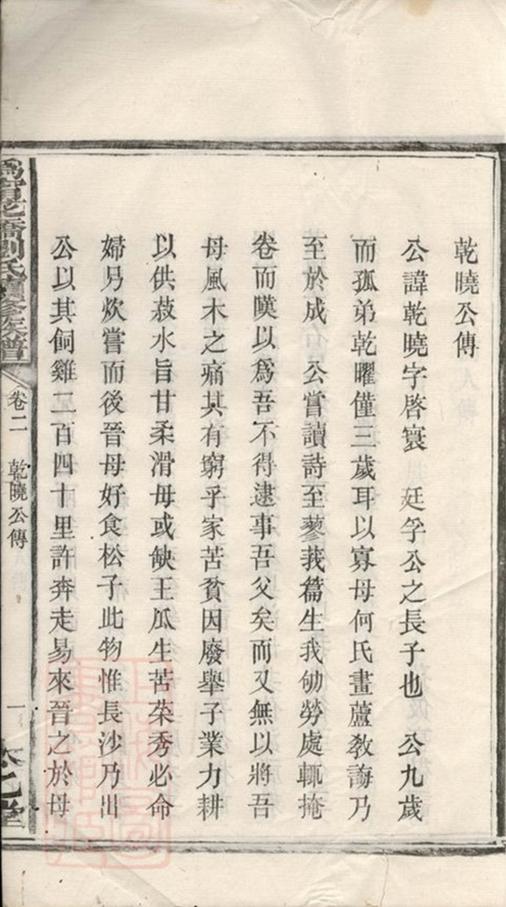 乾曉公傳
公諱乾曉字啓寰 廷孚公之長子也 公九歲
而孤弟乾曜僅三歲耳以寡母何氏畫蘆敎誨乃
至於成 公嘗讀詩至蓼莪篇生我劬勞處輒掩
卷而嘆以爲吾不得逮事吾父矣而又無以將吾
母風木之痛其有窮乎家苦貧因廢舉子業力耕
以供菽水旨甘柔滑毋或缺王瓜生苦菜秀必命
婦另炊嘗而後晉母好食松子此物惟長沙乃出
公以其飼雞二百四十里許奔走易來晉之於母
劉氏續修族譜
卷二
乾曉公傳
一
太乙堂